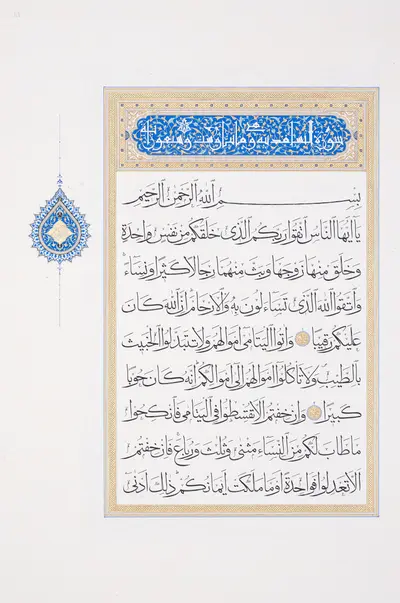 سورة النساء
بسم الله الرحمن الرحيم
يا أيها الناس اتقوا ربكم الذي خلقكم من نفس واحدة
وخلق منها زوجها وبث منهما رجالا كثيرا ونساء
واتقوا الله الذي تساءلون به والأرحام إن الله كان
عليكم رقيبا واتوا اليتامى أموالهم ولا تتبدلوا الخبيث
بالطيب ولا تأكلوا أموالهم إلى أموالكم إنه كان حوبا
كبيرا وإن خفتم ألا تقسطوا في اليتامى فانكحوا
ما طاب لكم من النساء مثنى وثلث ورباع فإن خفتم
ألا تعدلوا فواحدة أو ما ملكت أيمانكم ذلك أدنى